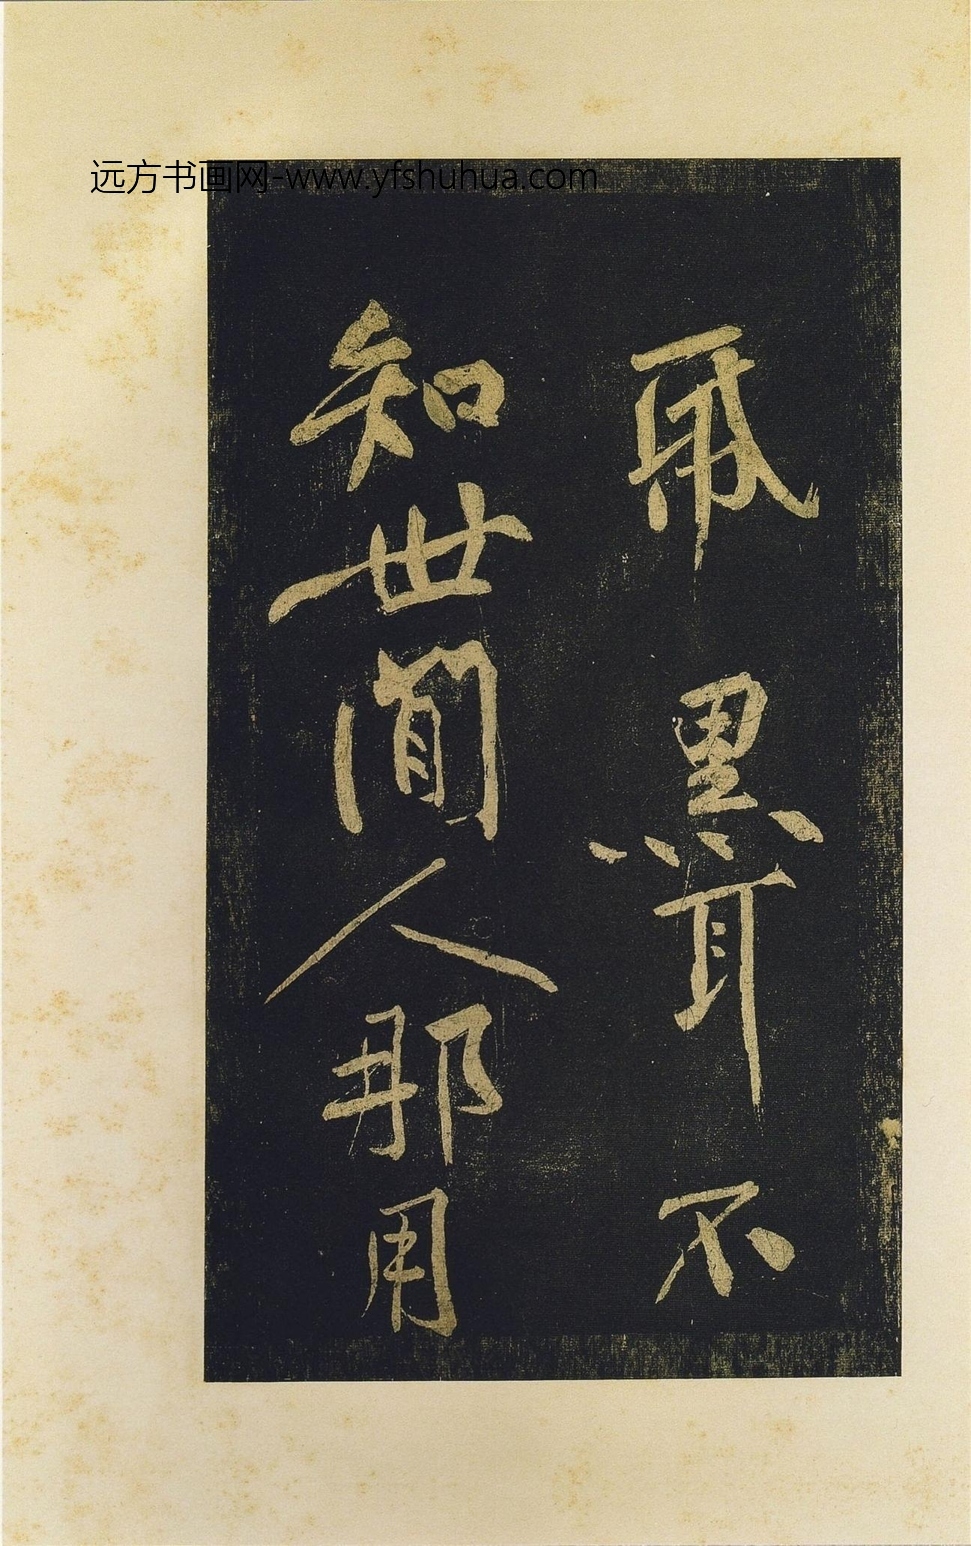 远方书画网-www.yfshuhua.com
黑耳不
知世閒人那用